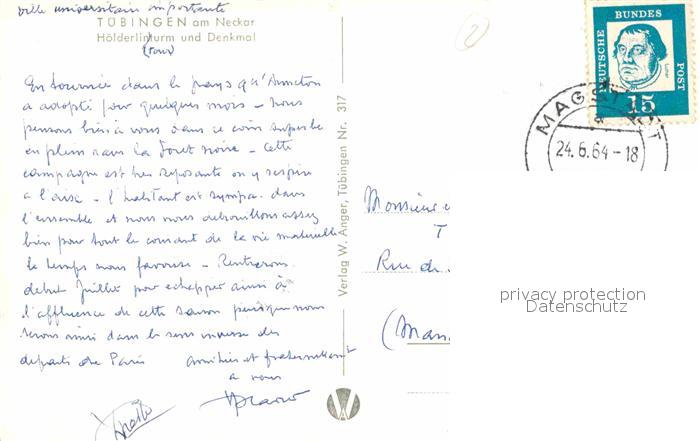 ville universitaire importante
TÜBINGEN am Neckar
Hölderlinturm und Denkmal
(tour)
En tournée dans le pays qu'
a adopté pour quelques mois – nous
pensons bien à vous dans ce coin superbe
en plein dans la Forêt noire – Cette
campagne est très reposante on y respire
à l'aise – l'habitant est sympa. dans
l'ensemble et nous nous débrouillons assez
bien pour tout le courant de la vie matérielle
le temps nous favorise – Rentrerons
début Juillet pour échapper ainsi à
l'affluence de cette saison puisque nous
serons ainsi dans le sens inverse des
départs de Paris
amitiés et fraternellement
à vous
Verlag W. Anger, Tübingen Nr. 317
DEUTSCHE BUNDESPOST
Luther
15
MAGSTADT
24.6.64-18
Monsieur
T
Rue de
(Man
privacy protection
Datenschutz